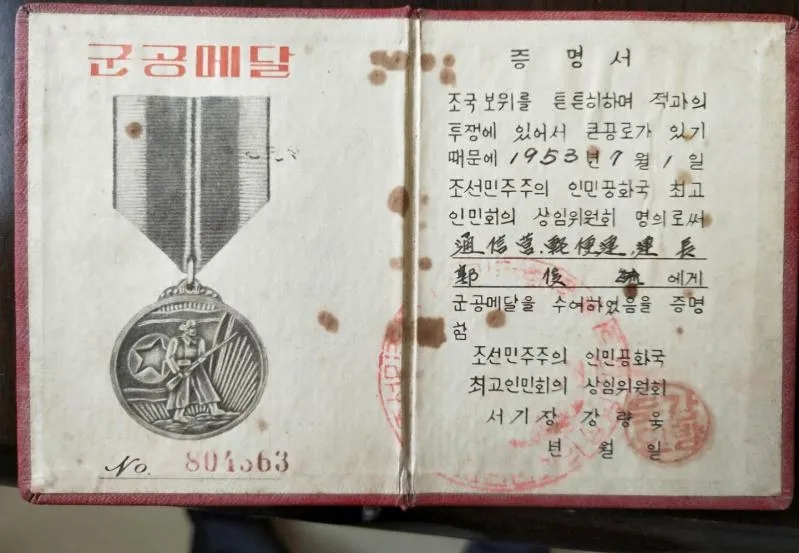 군공메달
No. 804563
증명서
조국보위를 튼튼히하며 적과의
투쟁에 있어서 큰공로가 있기
때문에 1953년 7월 1일
조선민주주의 인민공화국 최고
인민회의 상임위원회 명의로써
通信营 連 連長
에게
군공메달을 수여하였음을 증명
함
조선민주주의 인민공화국
최고인민회의 상임위원회
서기장 강량욱
년 월 일